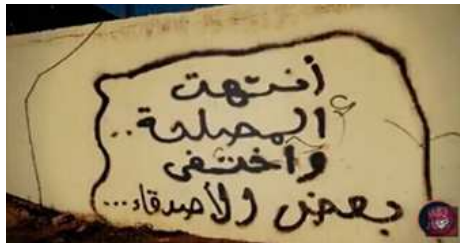 أنتهت
المصلحة..
وأختفى
بعض الأصدقاء...